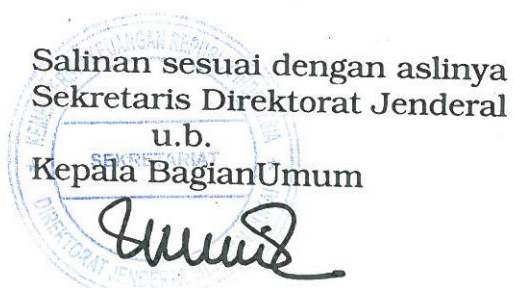 Salinan sesuai dengan aslinya
Sekretaris Direktorat Jenderal
u.b.
Kepala BagianUmum
KEUANGAN REPUB
SEKRETARIAT
DIREKTORAT JENDERAL